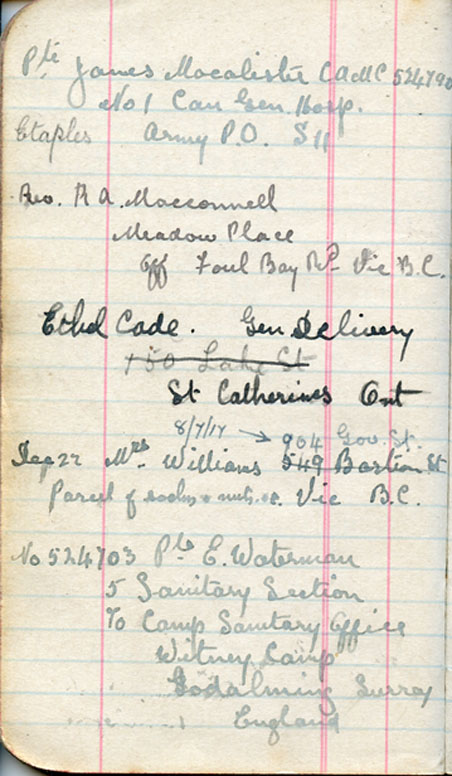 Pte James Macalister CAMC 524790
No 1 Can Gen. Hosp.
Etaples Army P.O. S 11
Rev. R A. Macconnell
Meadow Place
off Foul Bay Rd Vic B.C.
Ethel Cade. Gen Delivery
150 Lake St
St Catherines Ont
8/7/17 → 904 Gov. St.
Dec 22 Mrs Williams 549 Bastion St
Parcel of socks & nuts. Vic B.C.
No 524703 Pte E. Waterman
5 Sanitary Section
c/o Camp Sanitary Office
Witney Camp
Godalming Surrey
England